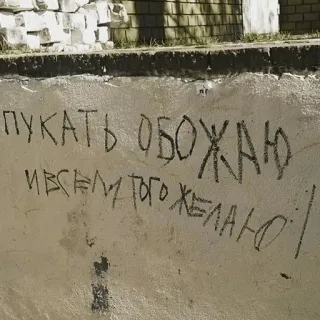 ПУКАТЬ ОБОЖАЮ
И ВСЕМ ТОГО ЖЕЛАЮ!